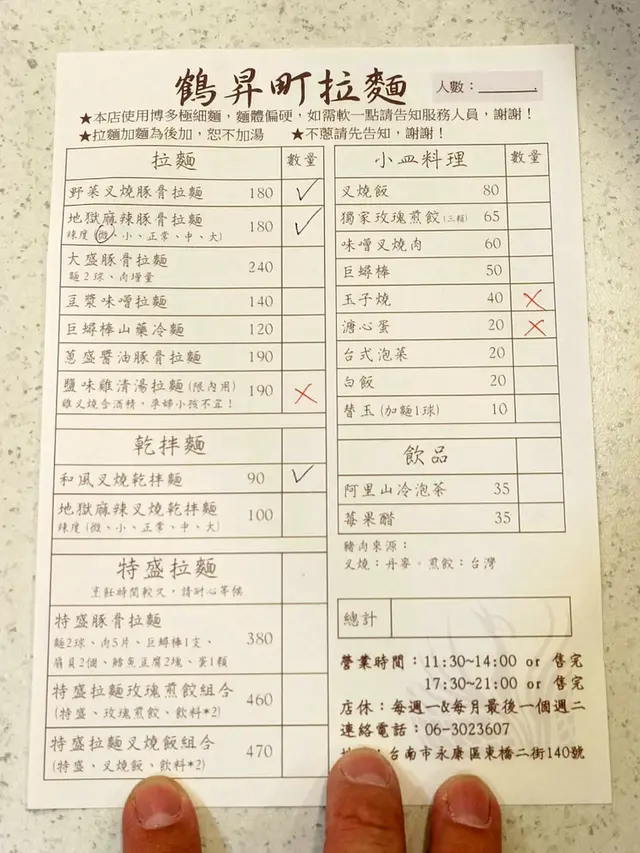 鶴昇町拉麵
人數：
★本店使用博多極細麵，麵體偏硬，如需軟一點請告知服務人員，謝謝！
★拉麵加麵為後加，恕不加湯 ★不蔥請先告知，謝謝！
拉麵 數量
野菜叉燒豚骨拉麵 180
地獄麻辣豚骨拉麵 180
辣度(微、小、正常、中、大)
大盛豚骨拉麵 240
麵2球、肉增量
豆漿味噌拉麵 140
巨蟳棒山藥冷麵 120
蔥盛醬油豚骨拉麵 190
鹽味雞清湯拉麵(限內用) 190
雞叉燒含酒精，孕婦小孩不宜！
乾拌麵
和風叉燒乾拌麵 90
地獄麻辣叉燒乾拌麵 100
辣度(微、小、正常、中、大)
特盛拉麵
烹飪時間較久，請耐心等候
特盛豚骨拉麵 380
麵2球、肉5片、巨蟳棒1支、
扇貝2個、鱈魚豆腐2塊、蛋1顆
特盛拉麵玫瑰煎餃組合 460
(特盛、玫瑰煎餃、飲料*2)
特盛拉麵叉燒飯組合 470
(特盛、叉燒飯、飲料*2)
小皿料理 數量
叉燒飯 80
獨家玫瑰煎餃(三顆) 65
味噌叉燒肉 60
巨蟳棒 50
玉子燒 40
溏心蛋 20
台式泡菜 20
白飯 20
替玉(加麵1球) 10
飲品
阿里山冷泡茶 35
莓果醋 35
豬肉來源：
叉燒：丹麥。煎餃：台灣
總計
營業時間：11:30~14:00 or 售完
17:30~21:00 or 售完
店休：每週一&每月最後一個週二
連絡電話：06-3023607
台南市永康區東橋二街140號